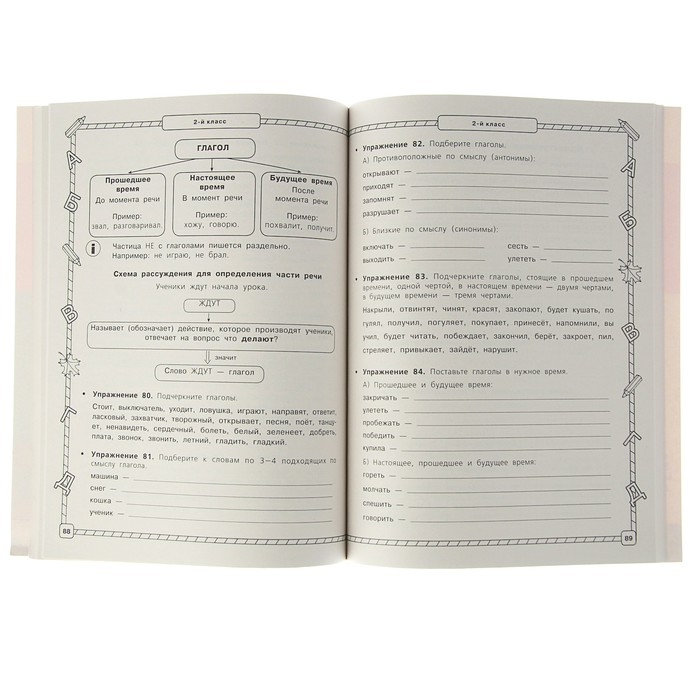 2-й класс
ГЛАГОЛ
Прошедшее время
До момента речи
Пример:
звал, разговаривал.
Настоящее время
В момент речи
Пример:
хожу, говорю.
Будущее время
После момента речи
Пример:
похвалит, получит.
Частица НЕ с глаголами пишется раздельно.
Например: не играю, не брал.
Схема рассуждения для определения части речи
Ученики ждут начала урока.
ЖДУТ
Называет (обозначает) действие, которое производят ученики,
отвечает на вопрос что делают?
значит
Слово ЖДУТ — глагол
• Упражнение 80. Подчеркните глаголы.
Стоит, выключатель, уходит, ловушка, играют, направят, ответит,
ласковый, захватчик, творожный, открывает, песня, поёт, танцу-
ет, ненавидеть, сердечный, болеть, белый, зеленеет, добреть,
плата, звонок, звонить, летний, гладить, гладкий.
• Упражнение 81. Подберите к словам по 3–4 подходящих по
смыслу глагола.
машина —
снег —
кошка —
ученик —
88
А
Б
В
Г
Д
2-й класс
• Упражнение 82. Подберите глаголы.
А) Противоположные по смыслу (антонимы):
открывают —
приходят —
запомнят —
разрушает —
Б) Близкие по смыслу (синонимы):
включать — сесть —
выходить — улететь —
• Упражнение 83. Подчеркните глаголы, стоящие в прошедшем
времени, одной чертой, в настоящем времени — двумя чертами,
в будущем времени — тремя чертами.
Накрыли, отвинтят, чинят, красят, закопают, будет кушать, по
гулял, получил, погуляет, покупает, принесёт, напомнили, вы
учил, будет читать, побеждает, закончил, берёт, закроет, пил,
стреляет, привыкает, зайдёт, нарушит.
• Упражнение 84. Поставьте глаголы в нужное время.
А) Прошедшее и будущее время:
закричать —
улететь —
пробежать —
победить —
купила —
Б) Настоящее, прошедшее и будущее время:
гореть —
молчать —
спешить —
говорить —
89
А
Б
В
Г
Д